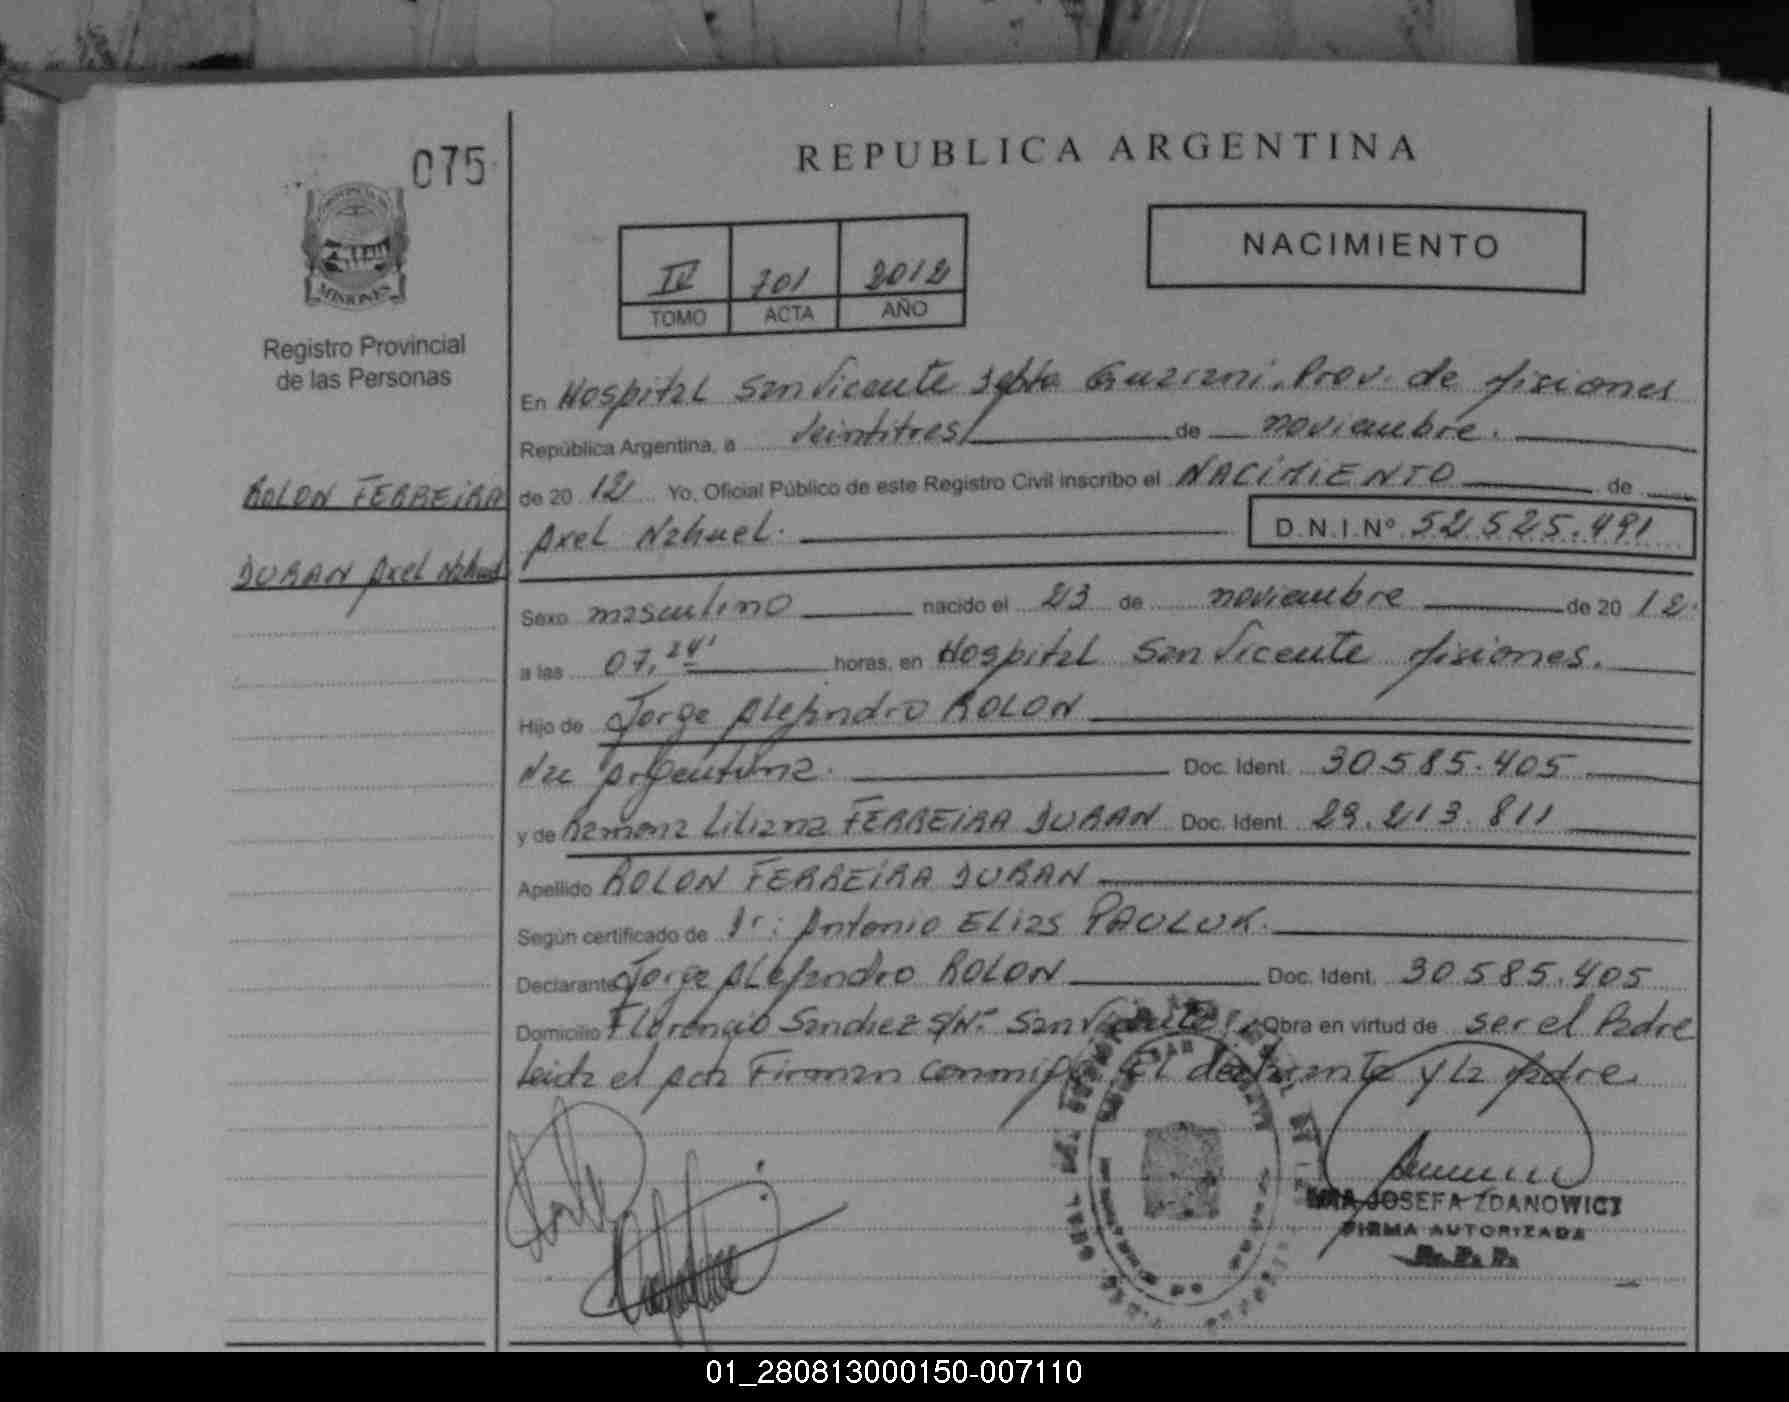 075
REPUBLICA ARGENTINA
NACIMIENTO
IV 701 2012
TOMO ACTA AÑO
MISIONES
Registro Provincial
de las Personas
En Hospital San Vicente Dpto Guarani. Prov. de Misiones
República Argentina, a veintitres de noviembre.
de 20 12 Yo, Oficial Público de este Registro Civil inscribo el NACIMIENTO de
ROLON FERREIRA
DURAN Axel Nahuel
Axel Nahuel. D.N.I.Nº 52.525.491
Sexo masculino nacido el 23 de noviembre de 20 12.
a las 07,24' horas, en Hospital San Vicente Misiones.
Hijo de Jorge Alejandro ROLON
Nac Argentina. Doc. Ident. 30.585.405
y de Ramona Liliana FERREIRA DURAN Doc. Ident. 29.213.811
Apellido ROLON FERREIRA DURAN
Según certificado de Dr: Antonio Elias PAULUK.
Declarante Jorge Alejandro ROLON Doc. Ident. 30.585.405
Domicilio Florencio Sanchez S/Nº San Vicente Obra en virtud de ser el Padre
Leida el acta Firman conmigo El declarante y la Madre.
JOSEFA ZDANOWICZ
FIRMA AUTORIZADA
01_280813000150-007110